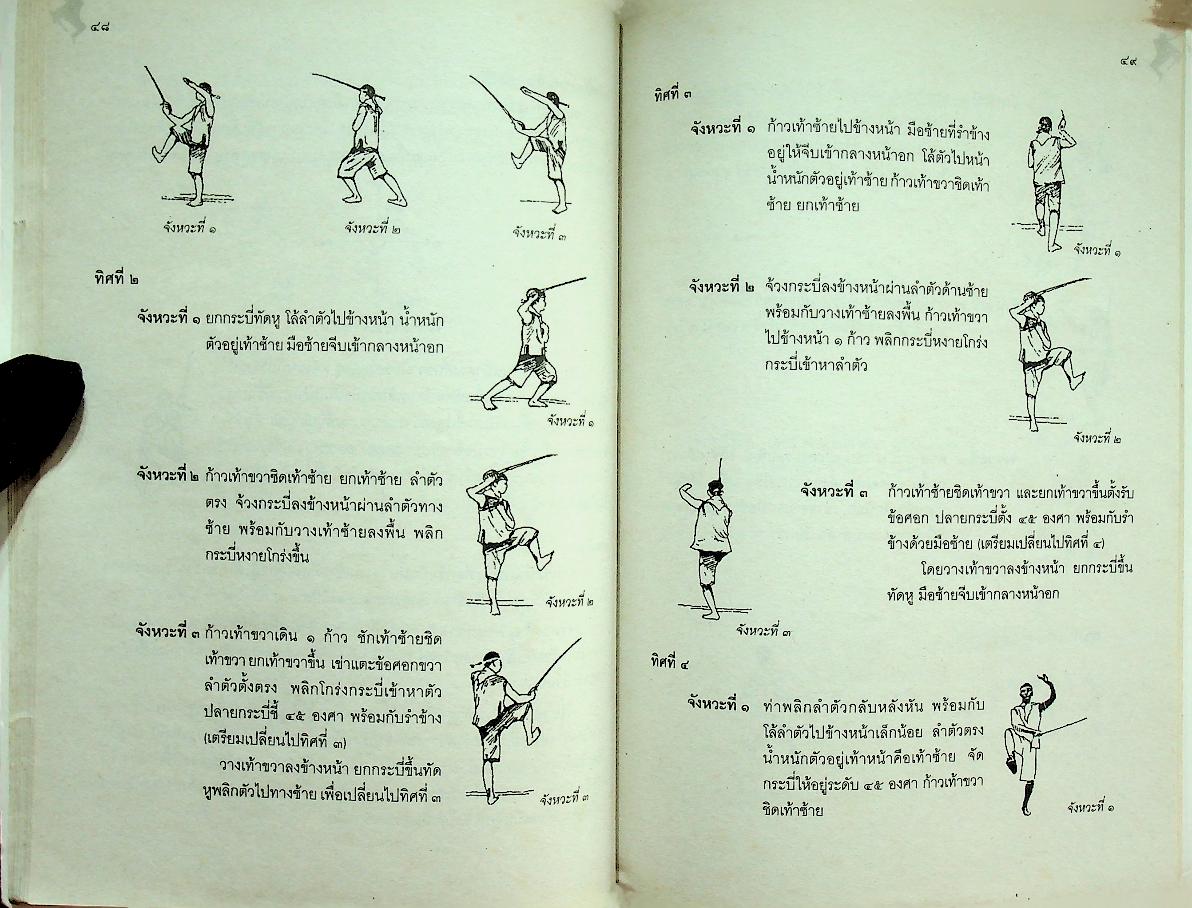 ๔๘
จังหวะที่ ๑
จังหวะที่ ๒
จังหวะที่ ๓
ทิศที่ ๒
จังหวะที่ ๑ ยกกระบี่ทัดหู โล้ลำตัวไปข้างหน้า น้ำหนัก
ตัวอยู่เท้าซ้าย มือซ้ายจีบเข้ากลางหน้าอก
จังหวะที่ ๑
จังหวะที่ ๒ ก้าวเท้าขวาชิดเท้าซ้าย ยกเท้าซ้าย ลำตัว
ตรง จ้วงกระบี่ลงข้างหน้าผ่านลำตัวทาง
ซ้าย พร้อมกับวางเท้าซ้ายลงพื้น พลิก
กระบี่หงายโกร่งขึ้น
จังหวะที่ ๒
จังหวะที่ ๓ ก้าวเท้าขวาเดิน ๑ ก้าว ชักเท้าซ้ายชิด
เท้าขวา ยกเท้าขวาขึ้น เข่าแตะข้อศอกขวา
ลำตัวตั้งตรง พลิกโกร่งกระบี่เข้าหาตัว
ปลายกระบี่ชี้ ๔๕ องศา พร้อมกับรำข้าง
(เตรียมเปลี่ยนไปทิศที่ ๓)
วางเท้าขวาลงข้างหน้า ยกกระบี่ขึ้นทัด
หูพลิกตัวไปทางซ้าย เพื่อเปลี่ยนไปทิศที่ ๓
จังหวะที่ ๓
๔๙
ทิศที่ ๓
จังหวะที่ ๑ ก้าวเท้าซ้ายไปข้างหน้า มือซ้ายที่รำข้าง
อยู่ให้จีบเข้ากลางหน้าอก โล้ตัวไปหน้า
น้ำหนักตัวอยู่เท้าซ้าย ก้าวเท้าขวาชิดเท้า
ซ้าย ยกเท้าซ้าย
จังหวะที่ ๑
จังหวะที่ ๒ จ้วงกระบี่ลงข้างหน้าผ่านลำตัวด้านซ้าย
พร้อมกับวางเท้าซ้ายลงพื้น ก้าวเท้าขวา
ไปข้างหน้า ๑ ก้าว พลิกกระบี่หงายโกร่ง
กระบี่เข้าหาลำตัว
จังหวะที่ ๒
จังหวะที่ ๓ ก้าวเท้าซ้ายชิดเท้าขวา และยกเท้าขวาขึ้นตั้งรับ
ข้อศอก ปลายกระบี่ตั้ง ๔๕ องศา พร้อมกับรำ
ข้างด้วยมือซ้าย (เตรียมเปลี่ยนไปทิศที่ ๔)
โดยวางเท้าขวาลงข้างหน้า ยกกระบี่ขึ้น
ทัดหู มือซ้ายจีบเข้ากลางหน้าอก
จังหวะที่ ๓
ทิศที่ ๔
จังหวะที่ ๑ ท่าพลิกลำตัวกลับหลังหัน พร้อมกับ
โล้ลำตัวไปข้างหน้าเล็กน้อย ลำตัวตรง
น้ำหนักตัวอยู่เท้าหน้าคือเท้าซ้าย จัด
กระบี่ให้อยู่ระดับ ๔๕ องศา ก้าวเท้าขวา
ชิดเท้าซ้าย
จังหวะที่ ๑